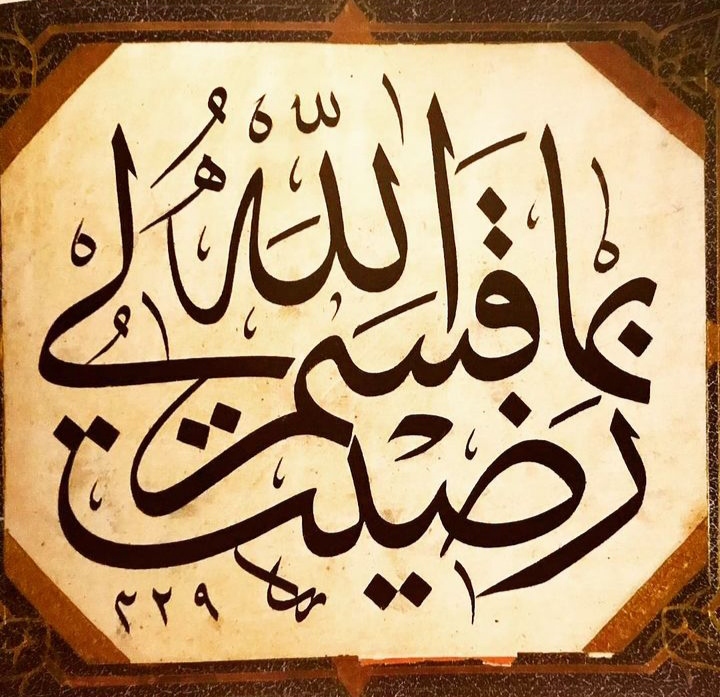 رَضِيتُ بِمَا قَسَمَ اللّٰهُ لِي
٣٢٩